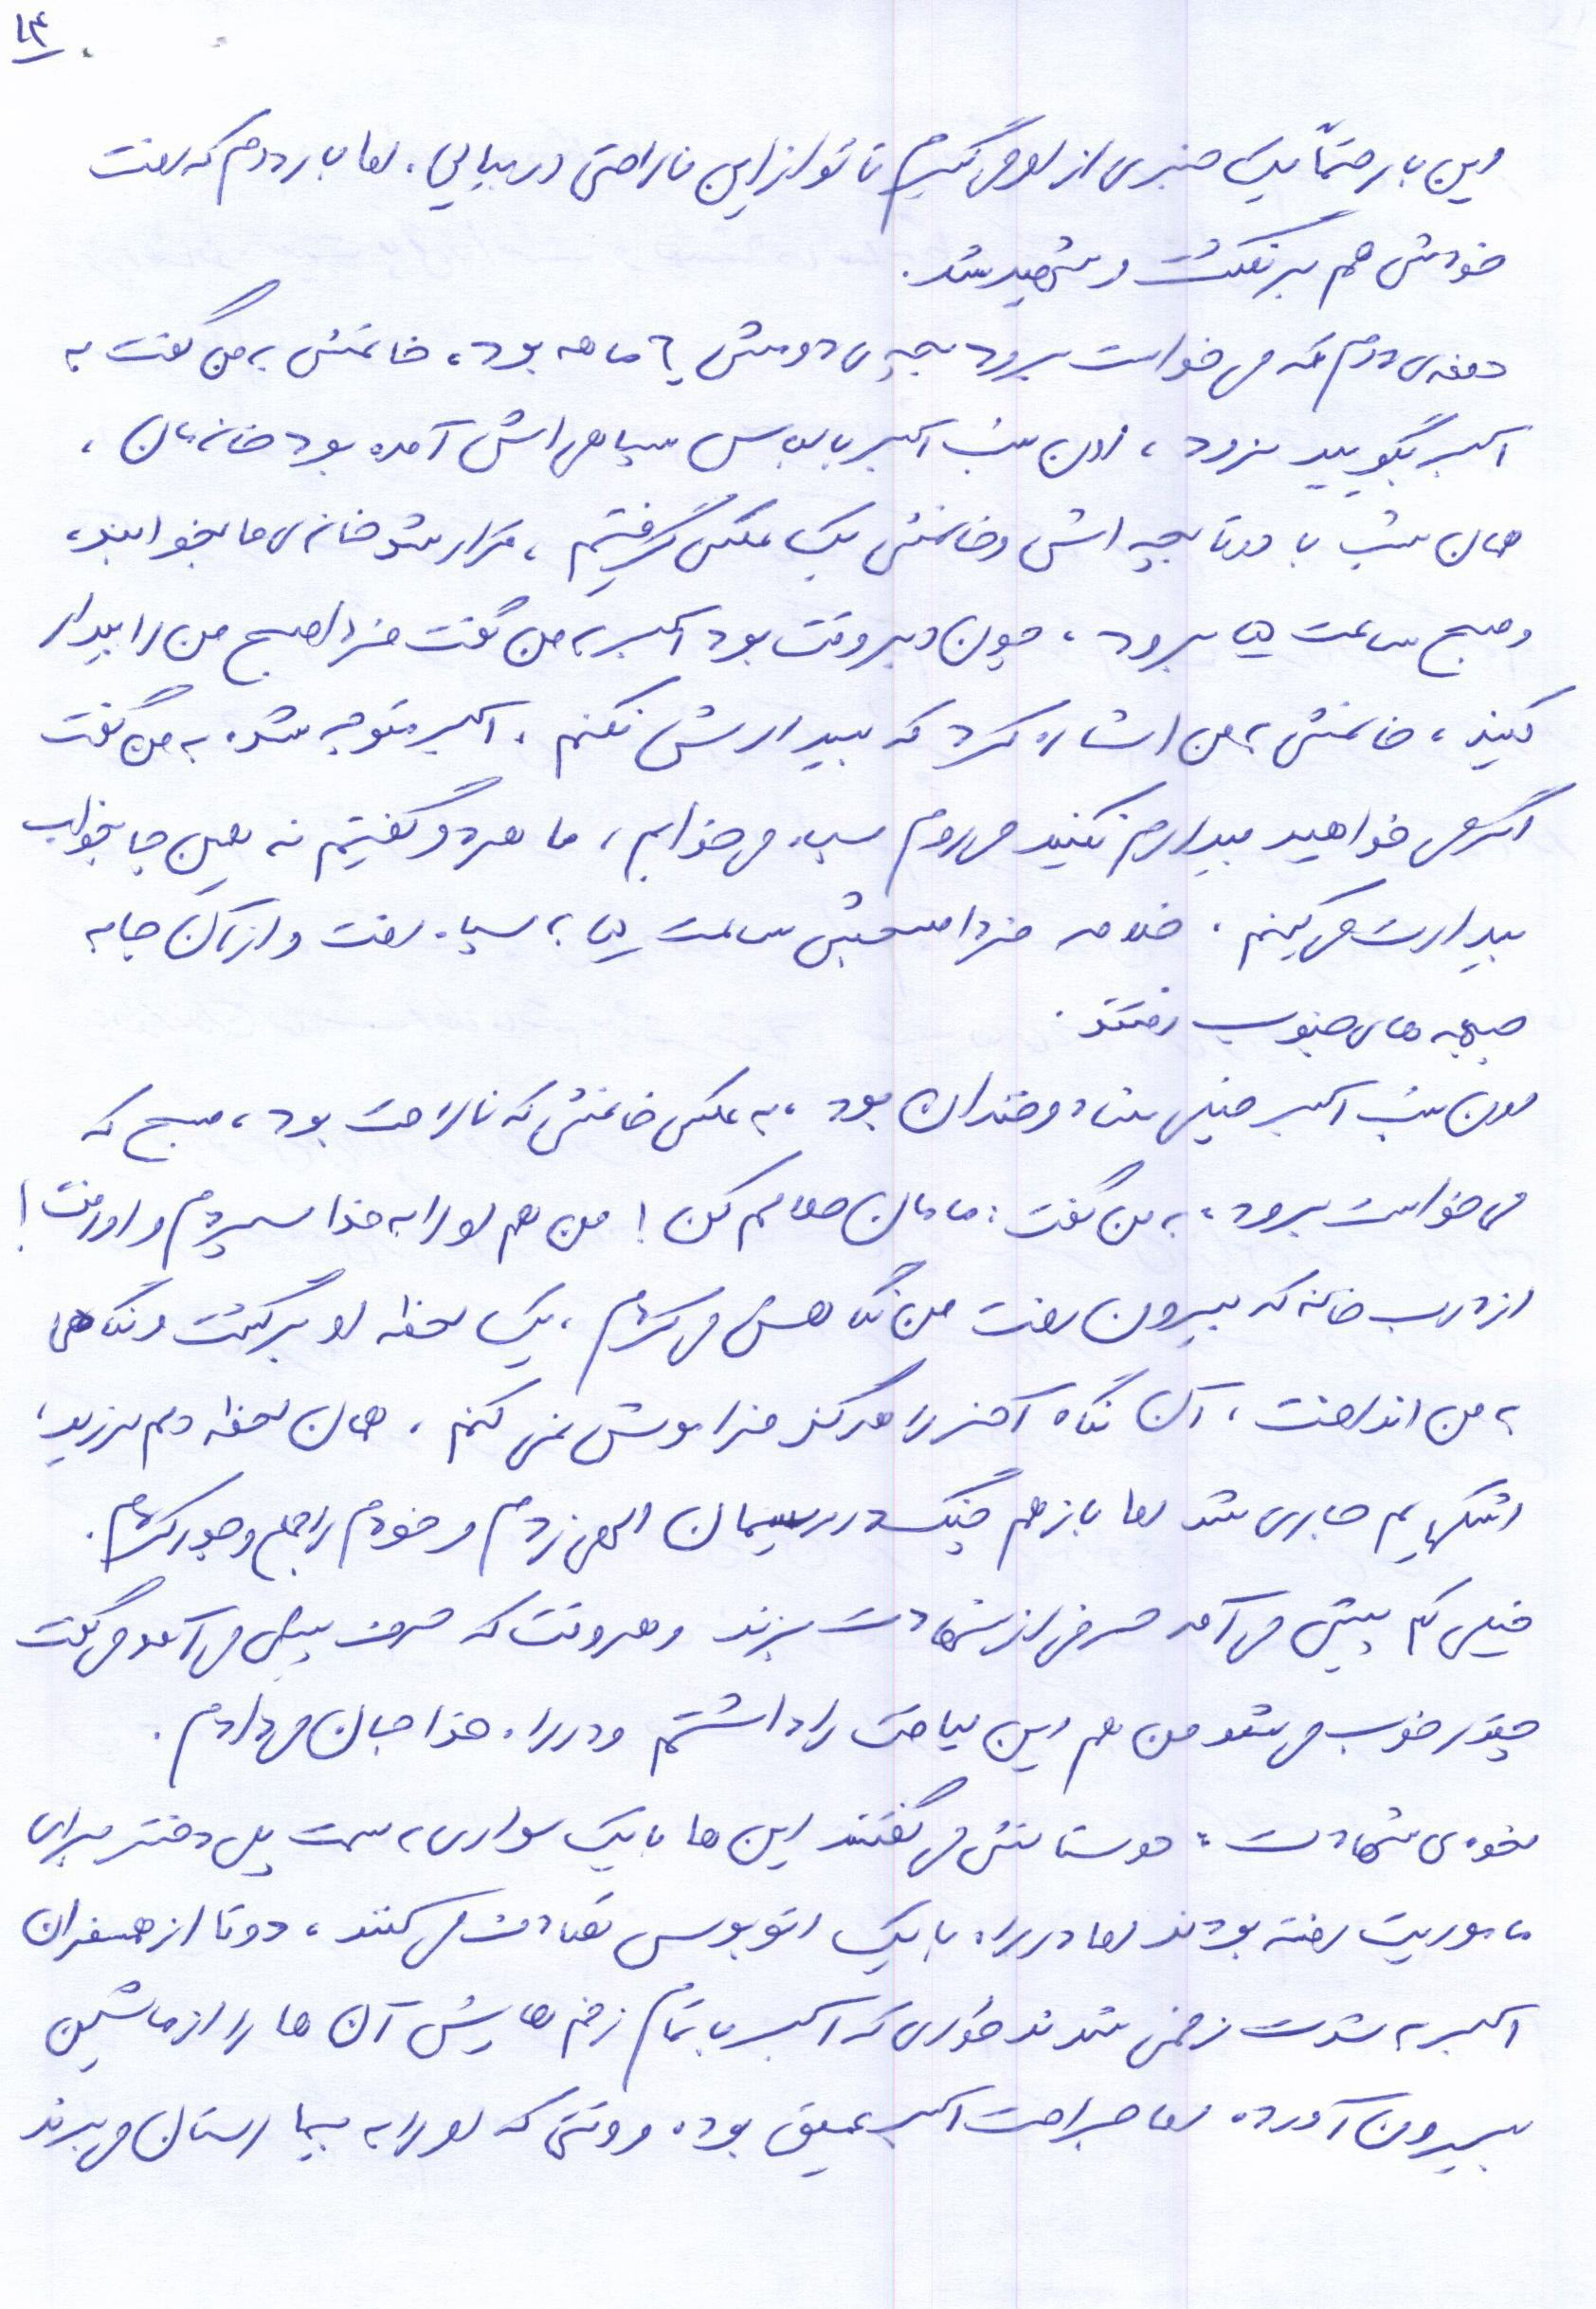 ۱۴
این بار حتماً یک خبری از او می گیرم تا تو از این ناراحتی در بیایی، اما بار دوم که رفت
خودش هم برنگشت و شهید شد.
دفعه ی دوم که می خواست برود بچه ی دومش ۶ ماهه بود، خانمش به من گفت به
اکبر بگویید نرود، اون شب اکبر با لباس سپاهی اش آمده بود خانه مان،
همان شب با دوتا بچه اش و خانمش یک عکس گرفتیم، قرار شد خانه ی ما بخوابند،
و صبح ساعت ۵ برود، چون دیر وقت بود اکبر به من گفت فردا صبح من را بیدار
کنید، خانمش به من اشاره کرد که بیدارش نکنم، اکبر متوجه شد، به من گفت
اگر می خواهید بیدارم نکنید می روم سپاه می خوابم، ما هر دو گفتیم نه همین جا بخواب
بیدارت می کنیم. خلاصه فردا صبحش ساعت ۵ به سپاه رفت و از آن جا به
جبهه های جنوب رفتند.
اون شب اکبر خیلی شاد و خندان بود، به عکس خانمش که ناراحت بود، صبح که
می خواست برود، به من گفت: مامان حلالم کن! من هم او را به خدا سپردم و او رفت!
از درب خانه که بیرون رفت من نگاهش می کردم، یک لحظه او برگشت و نگاهی
به من انداخت، آن نگاه آخر را هرگز فراموش نمی کنم، همان لحظه دلم لرزید،
اشکهایم جاری شد اما باز هم چنگ در ریسمان الهی زدم و خودم را جمع و جور کردم.
خیلی کم پیش می آمد حرفی از شهادت بزند و هر وقت که حرف پیش می آمد می گفت
چقدر خوب می شد من هم این لیاقت را داشتم و در راه خدا جان می دادم.
نحوه ی شهادت: دوستانش می گفتند این ها با یک سواری به سمت پل دختر برای
ماموریت رفته بودند اما در راه با یک اتوبوس تصادف می کنند، دوتا از همسفران
اکبر به شدت زخمی شدند طوری که اکبر با تمام زخم هایش آن ها را از ماشین
بیرون آورده اما جراحت اکبر عمیق بوده و وقتی که او را به بیمارستان می برند